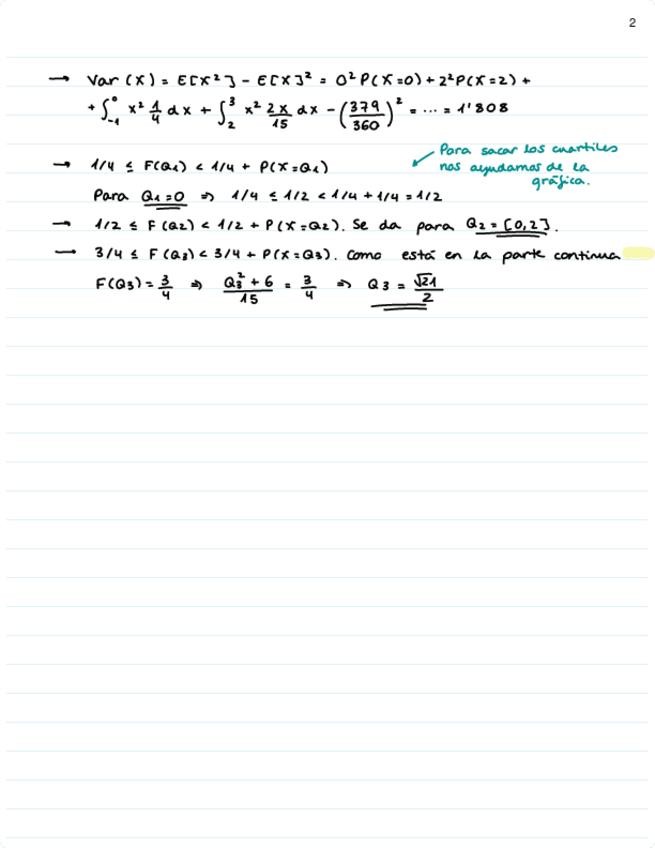 2
→ Var (X) = E[X²] - E[X]² = 0² P(X=0) + 2² P(X=2) +
+ ∫₋₁⁰ x² 1/4 dx + ∫₂³ x² 2x/15 dx - (379/360)² = ... = 1'808
→ 1/4 ≤ F(Q1) < 1/4 + P(X=Q1)
Para sacar los cuartiles
nos ayudamos de la
gráfica.
Para Q1=0 ⇒ 1/4 ≤ 1/2 < 1/4 + 1/4 = 1/2
→ 1/2 ≤ F(Q2) < 1/2 + P(X=Q2). Se da para Q2 = [0,2].
→ 3/4 ≤ F(Q3) < 3/4 + P(X=Q3). Como está en la parte continua
F(Q3) = 3/4 ⇒ Q3² + 6/15 = 3/4 ⇒ Q3 = √21/2